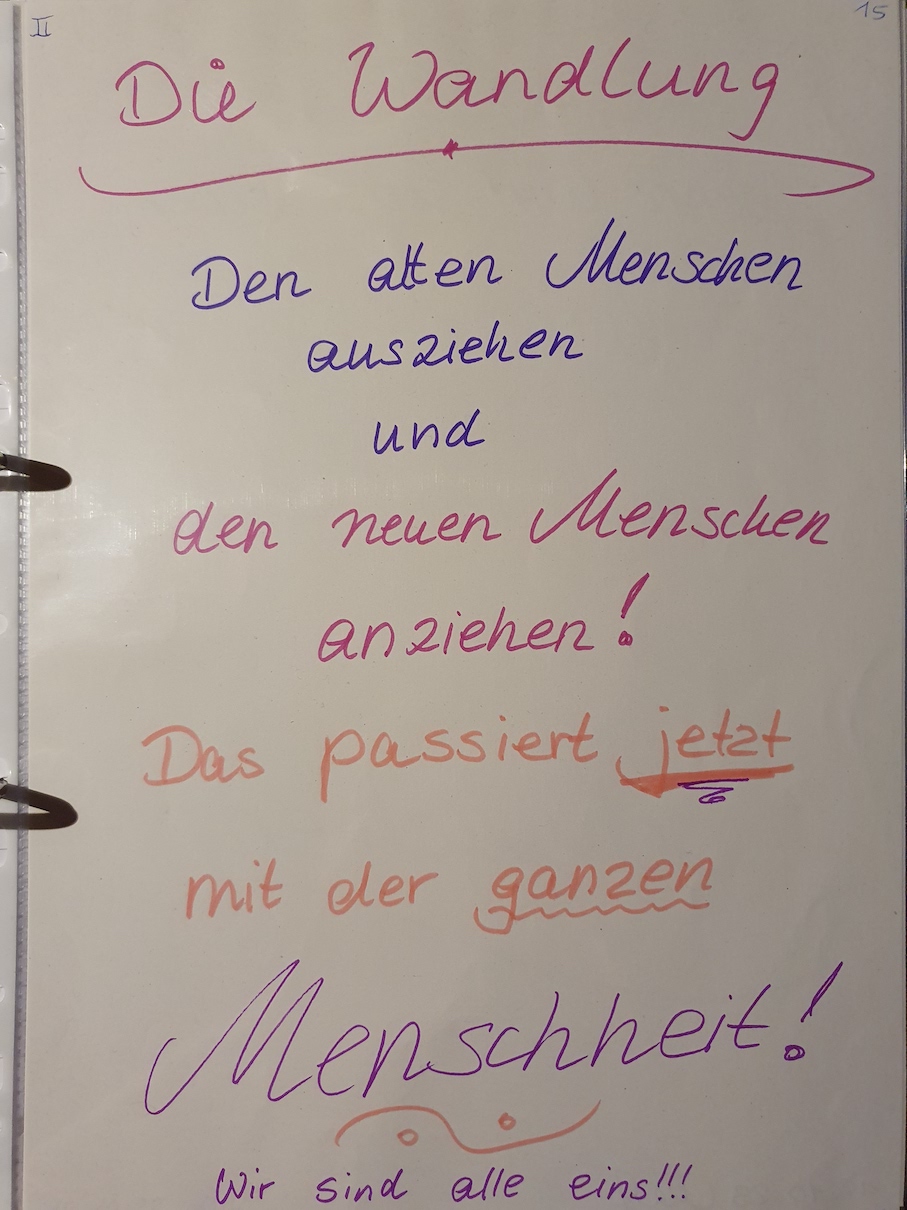 II
15
Die Wandlung
Den alten Menschen
ausziehen
und
den neuen Menschen
anziehen!
Das passiert jetzt
mit der ganzen
Menschheit!
Wir sind alle eins!!!